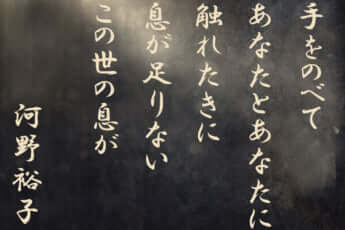 手をのべて
あなたとあなたに
触れたきに
息が足りない
この世の息が
河野裕子